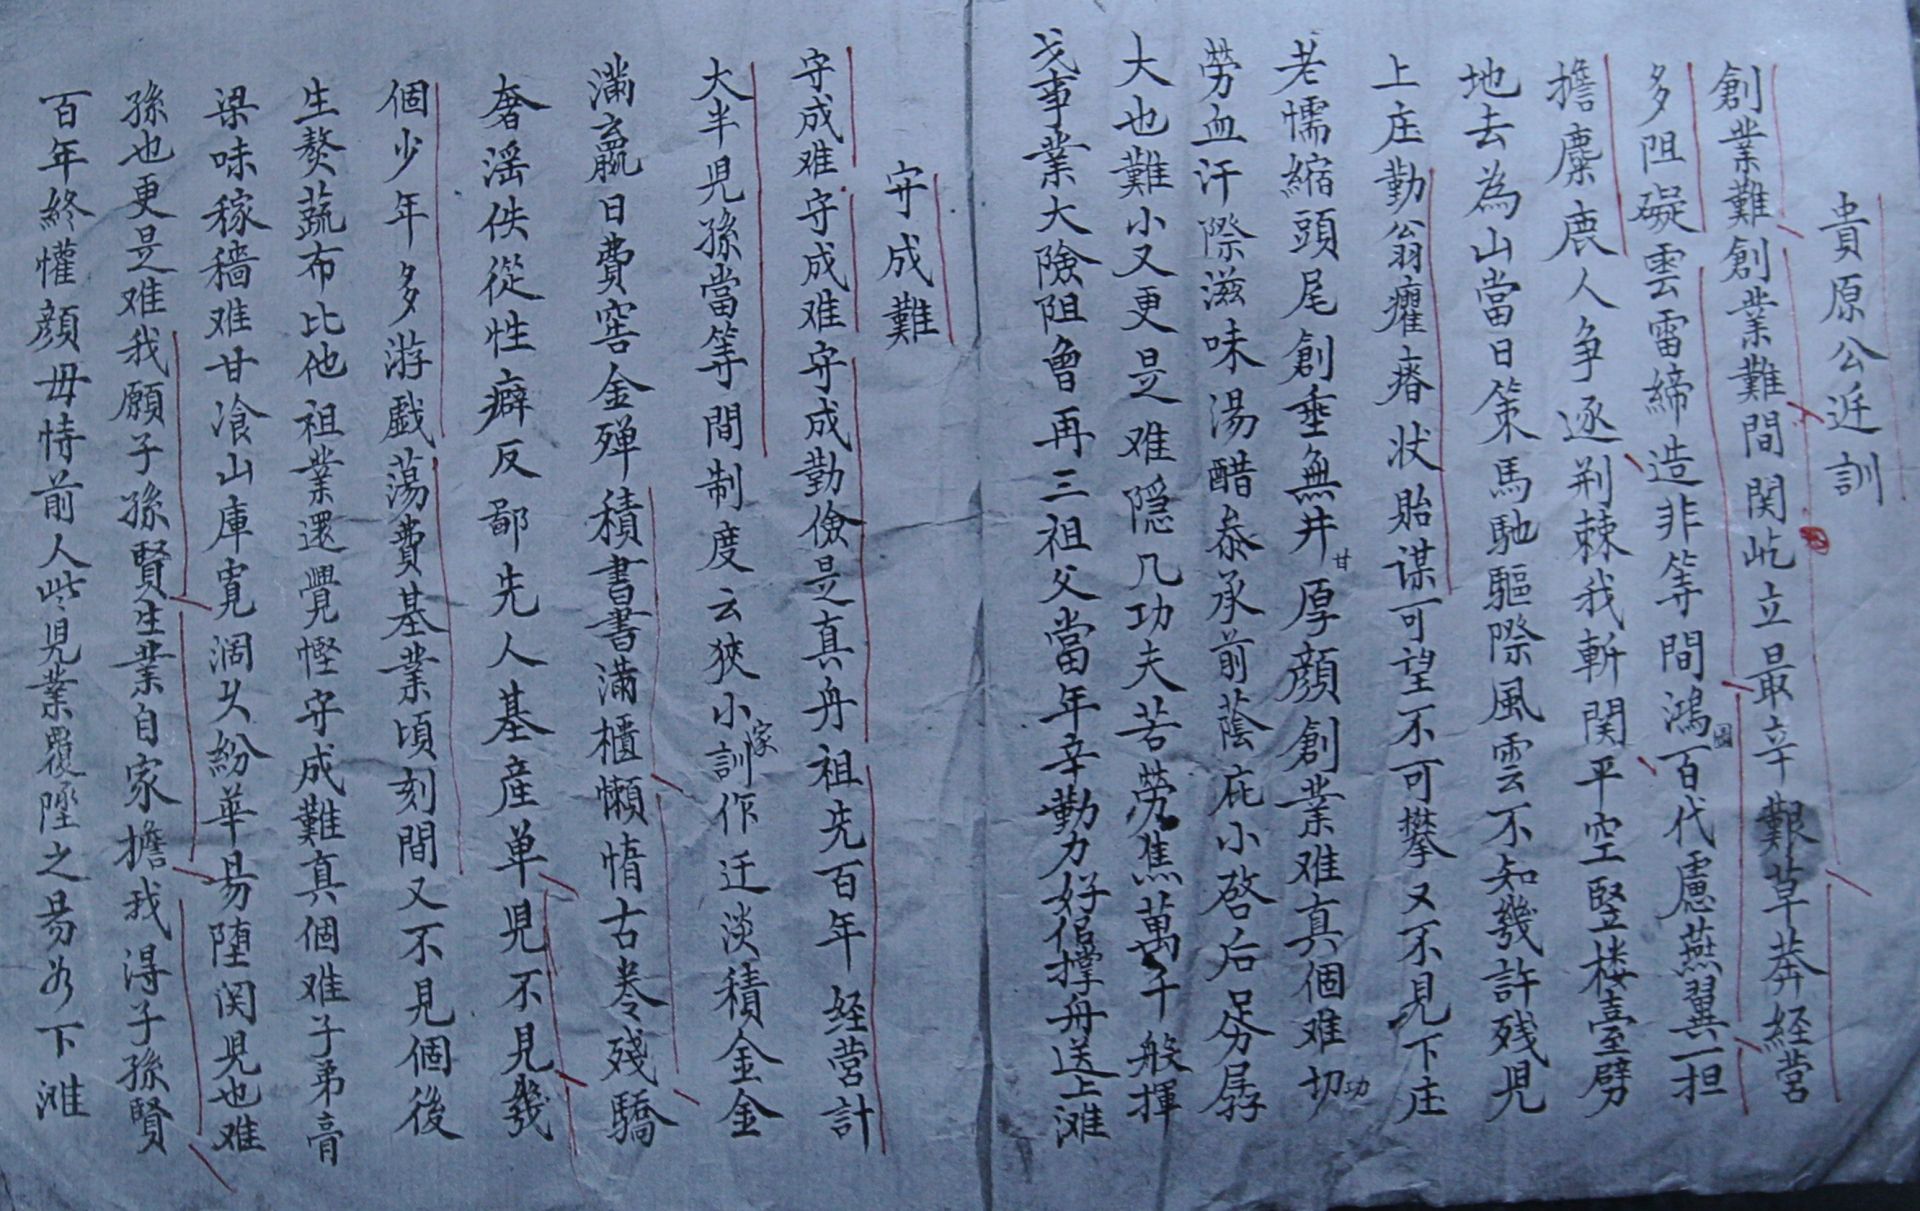 貴原公近訓
創業難創業難間関屹立最辛艱草莽経営
多阻礙雲雷締造非等間鴻圖百代慮燕翼一担
擔麋鹿人争逐荆棘我斬関平空竪楼臺劈
地去為山當日策馬馳驅際風雲不知幾許残児
上庄勤翁癯瘠状貽谋可望不可攀又不見下庄
老懦縮頭尾創垂無井甘厚顔創業难真個难切功
勞血汗際滋味湯醋忝承前蔭庇小啓后昆孱
大也難小又更是难隠几功夫苦勞焦萬千般揮
戈事業大險阻曾再三祖父當年辛勤力好侣撑舟送上滩
守成難
守成难守成难守成勤儉是真舟祖先百年経营計
大半児孫當等間制度云狹小家訓作迂淡積金金
滿贏日費窖金殫積書書滿櫃懶惰古卷令殘驕
奢滛佚從性癖反鄙先人基産单見不見幾
個少年多游戯蕩費基業頃刻間又不見個後
生熬蔬布比他祖業還覺慳守成難真個难子弟膏
梁味稼穑难甘飡山庫寬濶火紛華易墮関見也难
孫也更是难我願子孫賢生業自家擔我得子孫賢
百年終懽顔毋恃前人些児業覆墜之易为下滩